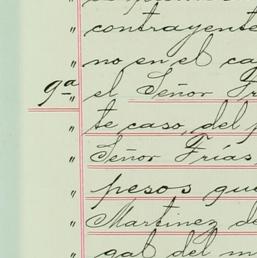 " contrayente
" no en el ca
9ª " el Señor Fr
" te caso del p
" Señor Frías
" pesos que
" Martinez de
" gal del m